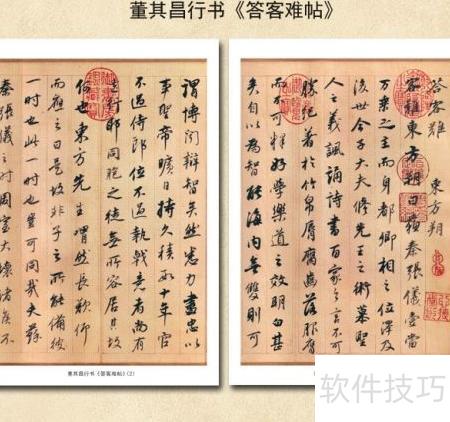 董其昌行书《答客难帖》
答客難 東方朔
客難東方朔曰蘇秦張儀壹當
萬乘之主而身都卿相之位澤及
後世今子大夫修先王之術慕聖
人之義諷誦詩書百家之言不可
勝紀著於竹帛唇腐齒落服膺
而不可釋好學樂道之效明白甚
矣自以為智能海內無雙則可
謂博聞辯智矣然悉力盡忠以
事聖帝曠日持久積數十年官
不過侍郎位不過執戟意者尚有
遺行耶同胞之徒無所容居其故
何也東方先生喟然長歎仰
而應之曰是故非子之所能備彼
一時也此一時也豈可同哉夫蘇
秦張儀之時周室大壞諸侯不
董其昌行书《答客难帖》(2)
董其昌行书《答客难帖》
软件技巧